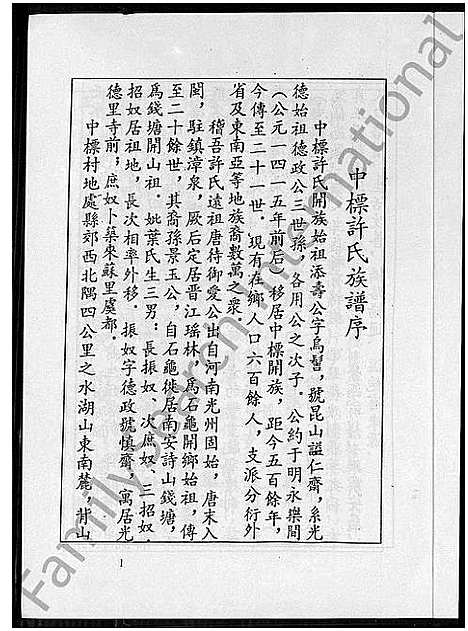 中標許氏族譜序
中標許氏開族始祖添壽公字烏髻，號昆山謚仁齋，系光
德始祖德政公三世孫，各用公之次子。公約于明永樂間
（公元一四一五年前后）移居中標開族，距今五百餘年，
今傳至二十一世。現有在鄉人口六百餘人，支派分衍外
省及東南亞等地族裔數萬之衆。
稽吾許氏遠祖唐待御愛公出自河南光州固始，唐末入
閩，駐鎮漳泉，厥后定居晋江瑤林，爲石龜開鄉始祖，傳
至二十餘世，其裔孫景玉公，自石龜徙居南安詩山錢塘，
爲錢塘開山祖。妣葉氏生三男：長振奴、次庶奴、三招奴，
招奴居祖地，長次相率外移。振奴字德政號慎齋，寓居光
德里寺前；庶奴卜築來蘇里虞都。
中標村地處縣郊西北隅四公里之水湖山東南麓，背山
1
Family Search International